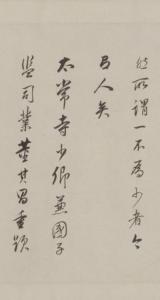 所謂一不為少者
人矣
太常寺少卿兼國子
監司業董其昌重題